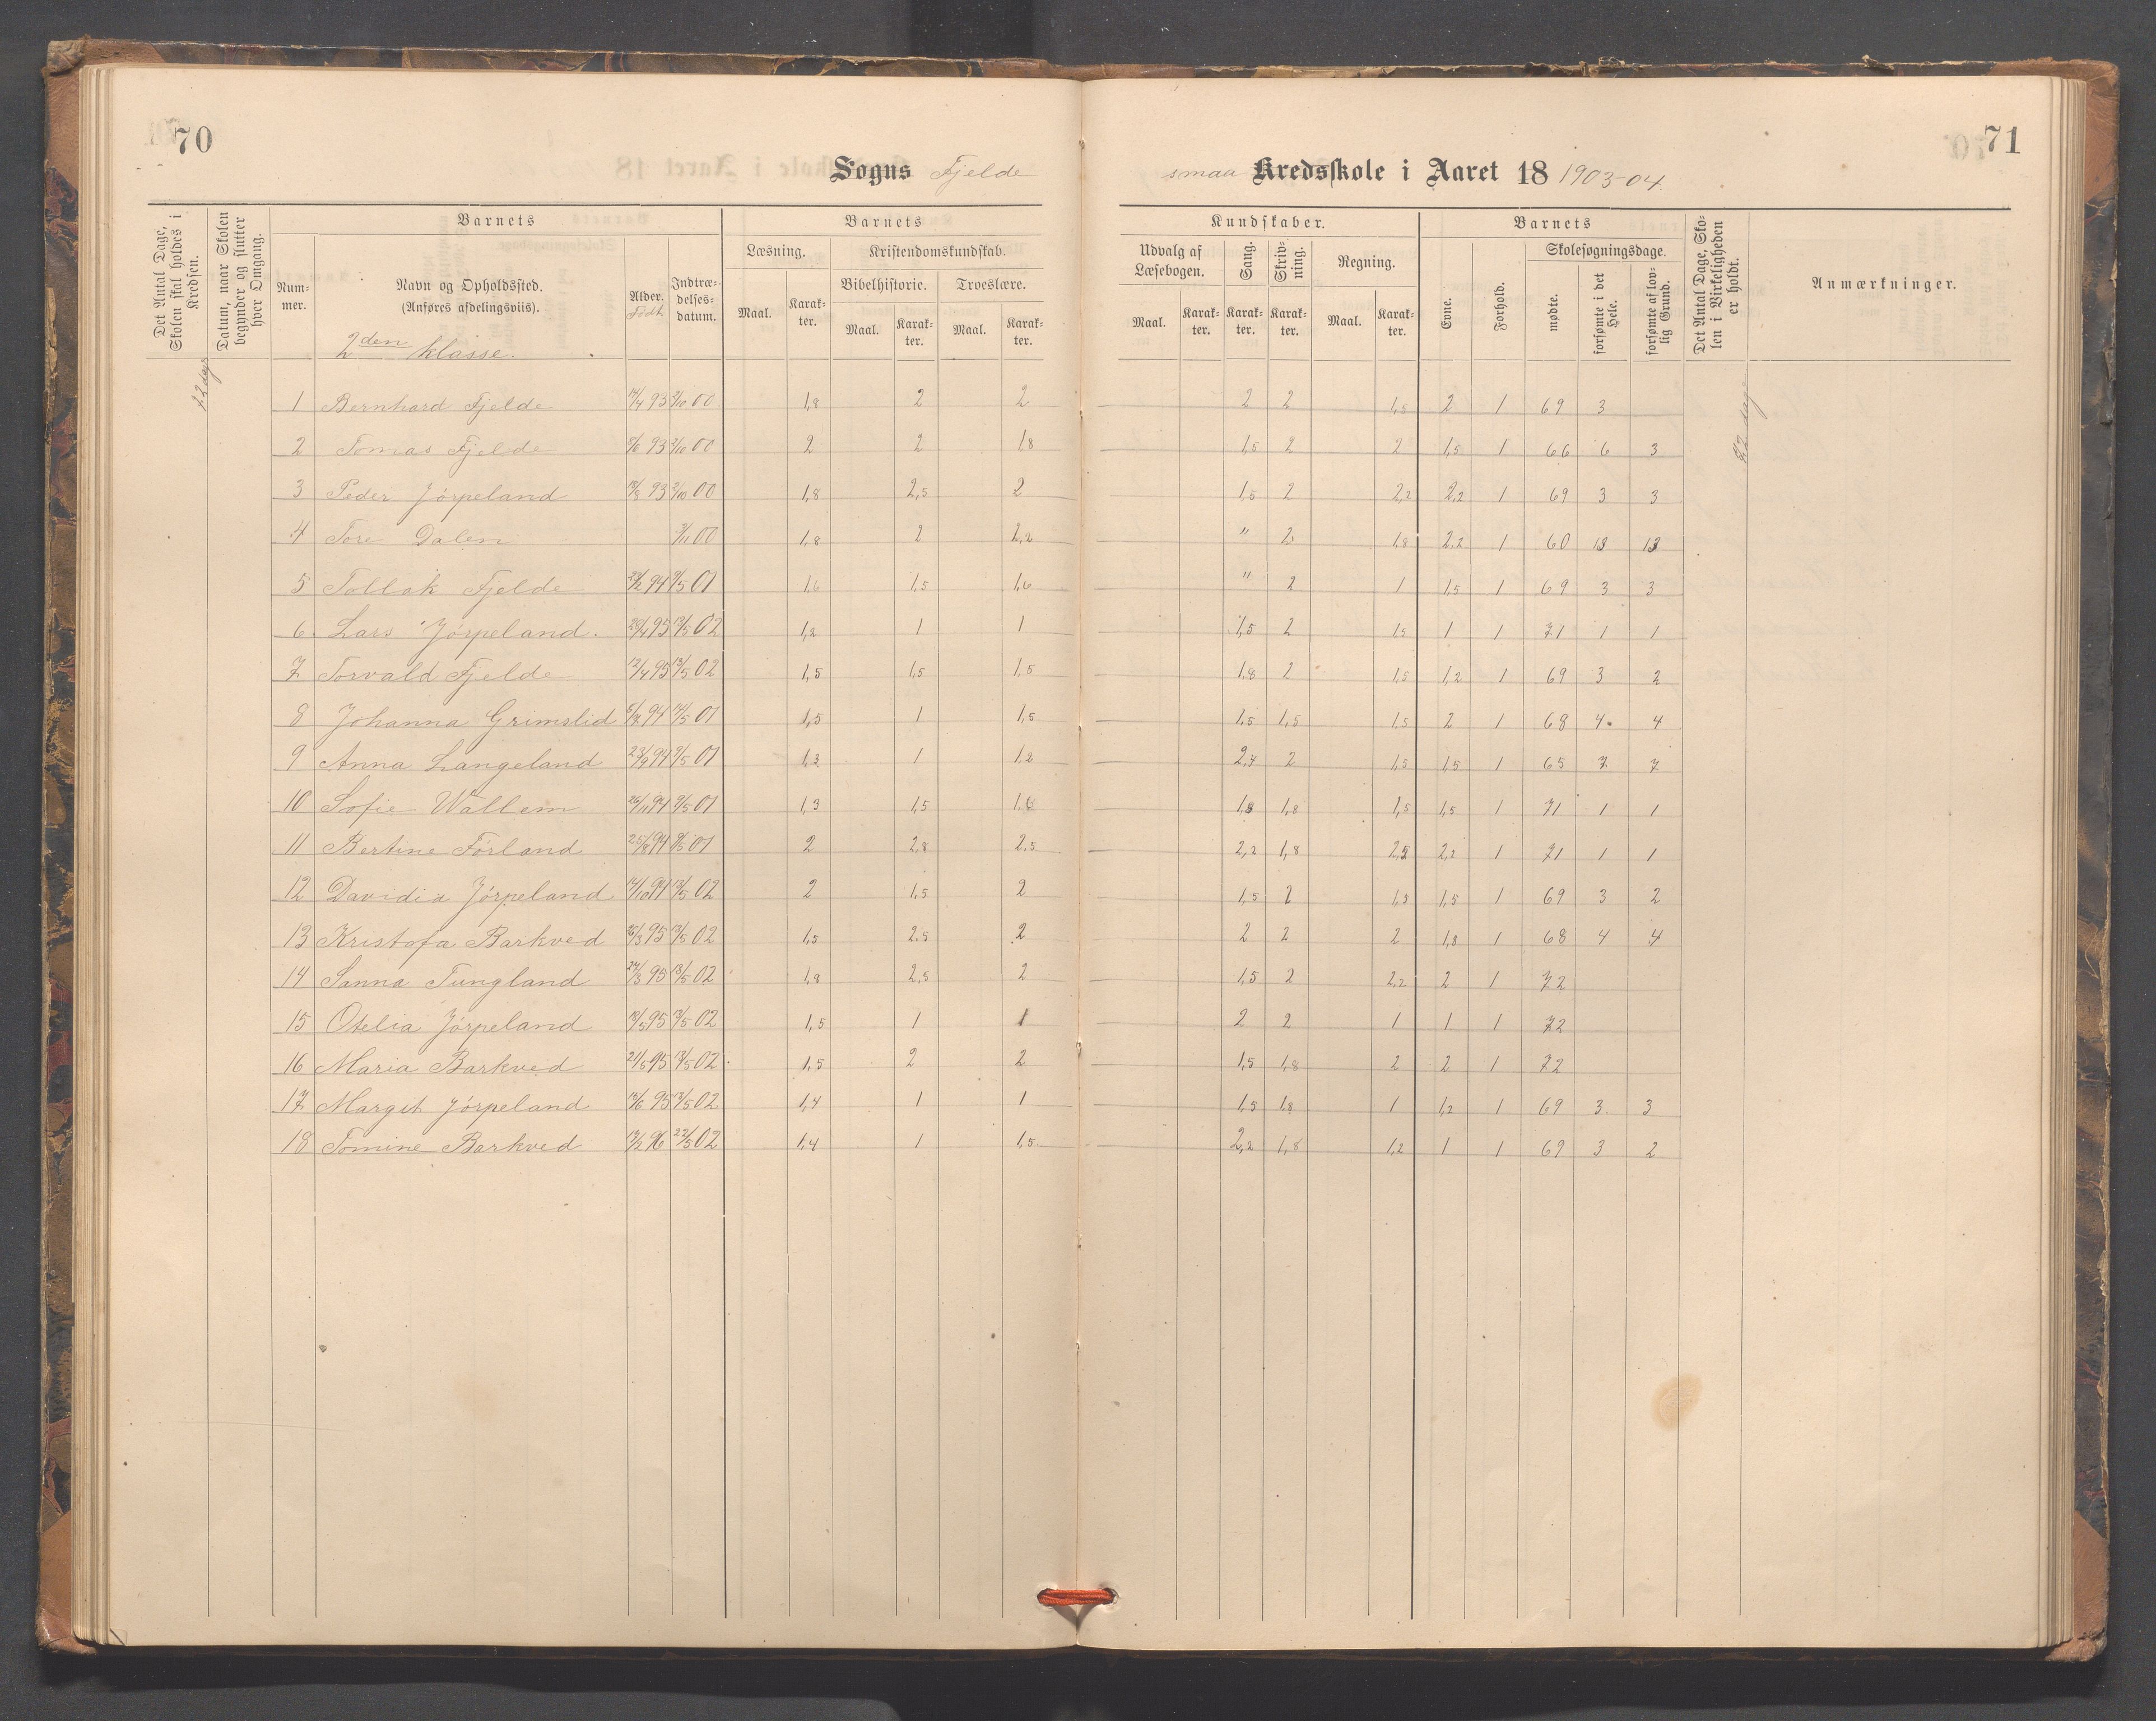 70
71
Sogns Fjelde smaa Kredsskole i Aaret 18 1903-04.
Det Antal Dage, Skolen skal holdes i Kredsen.
Datum, naar Skolen begynder og slutter hver Omgang.
Barnets
Num-
mer.
Navn og Opholdssted.
(Anføres afdelingsviis).
2den klasse.
Alder.
Født.
Indtræ-
delses-
datum.
Barnets
Læsning.
Maal.
Karak-
ter.
Kristendomskundskab.
Bibelhistorie.
Maal.
Karak-
ter.
Troeslære.
Maal.
Karak-
ter.
Kundskaber.
Udvalg af
Læsebogen.
Maal.
Karak-
ter.
Sang.
Karak-
ter.
Skriv-
ning.
Karak-
ter.
Regning.
Maal.
Karak-
ter.
Barnets
Evne.
Forhold.
Skolesøgningsdage.
mødte.
forsømte i det Hele.
forsømte af lov-
lig Grund.
Det Antal Dage, Sko-
len i Virkeligheden
er holdt.
Anmærkninger.
72 dage
72 dage
1 Bernhard Fjelde 93 00 1,8 2 2 2 2 1,5 2 1 69 3
2 Tomas Fjelde 93 00 2 2 1,8 1,5 2 2 1,5 1 66 6 3
3 Peder Jørpeland 93 00 1,8 2,5 2 1,5 2 2,2 2,2 1 69 3 3
4 Tore Dalen 3/11 00 1,8 2 2,2 " 2 1,8 2,2 1 60 13 13
5 Tollak Fjelde 94 9/5 01 1,6 1,5 1,6 " 2 1 1,5 1 69 3 3
6 Lars Jørpeland. 95 13/5 02 1,2 1 1 1,5 2 1,5 1 1 71 1 1
7 Torvald Fjelde 12/4 95 13/5 02 1,5 1,5 1,5 1,8 2 1,5 1,2 1 69 3 2
8 Johanna Grimslid 94 01 1,5 1 1,5 1,5 1,5 1,5 2 1 68 4 4
9 Anna Langeland 23/9 94 9/5 01 1,3 1 1,2 2,4 2 1,5 1,5 1 65 7 7
10 Sofie Wallem 26/11 94 9/5 01 1,3 1,5 1,8 1,8 1,5 1,5 1 71 1 1
11 Bertine Førland 25/8 94 01 2 2,8 2,5 2,2 1,8 2,5 2,2 1 71 1 1
12 Davidia Jørpeland 14/10 94 13/5 02 2 1,5 2 1,5 2 1,5 1,5 1 69 3 2
13 Kristofa Barkved 95 13/5 02 1,5 2,5 2 2 2 2 1,8 1 68 4 4
14 Sanna Tungland 24/3 95 13/5 02 1,8 2,5 2 1,5 2 2,2 2 1 72
15 Otelia Jørpeland 95 13/5 02 1,5 1 1 2 2 1 1 1 72
16 Maria Barkved 21/5 95 13/5 02 1,5 2 2 1,5 1,8 2 2 1 72
17 Margit Jørpeland 95 13/5 02 1,4 1 1 1,5 1,8 1 1,2 1 69 3 3
18 Tomine Barkved 96 22/5 02 1,4 1 1,5 2,2 1,8 1,2 1 1 69 3 2